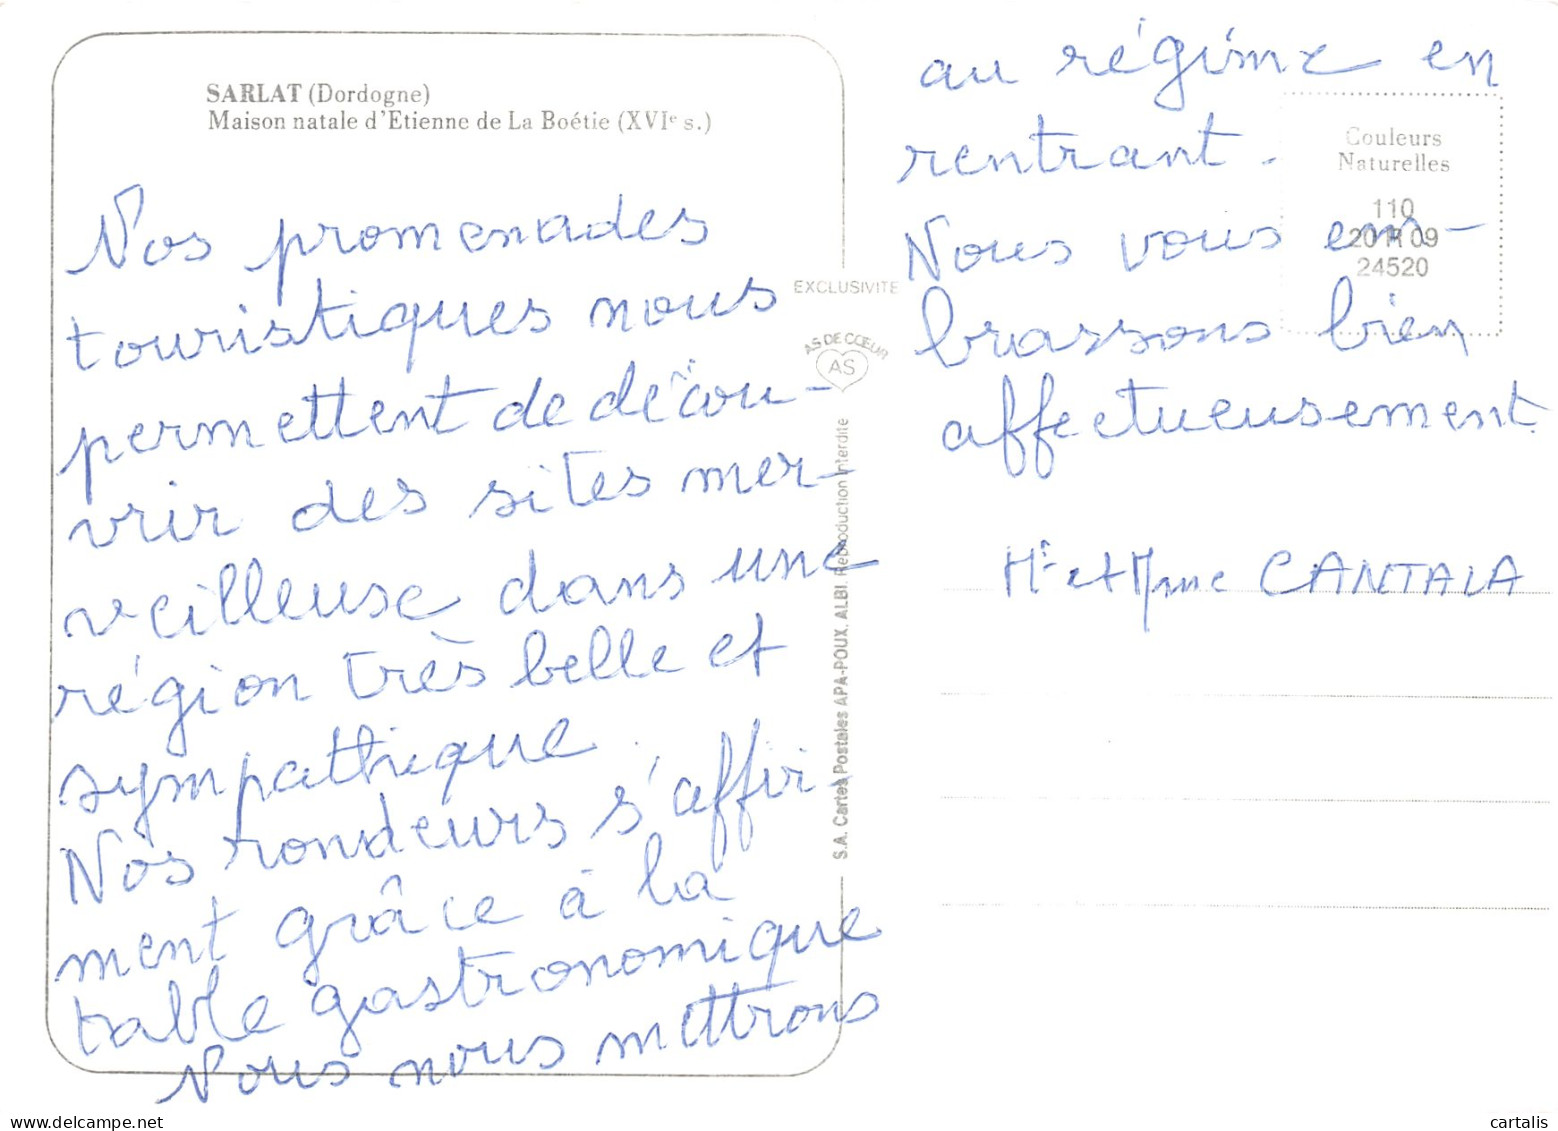 SARLAT (Dordogne)
Maison natale d'Etienne de La Boétie (XVIe s.)
Nos promenades
touristiques nous
permettent de décou-
vrir des sites mer-
veilleuse dans une
région très belle et
sympathique
Nos rondeurs s'affir-
ment grâce à la
table gastronomique
Nous nous mettrons
EXCLUSIVITE
AS DE CŒUR
AS
S.A. Cartes Postales APA-POUX. ALBI. Reproduction interdite
au régime en
rentrant.
Nous vous em-
brassons bien
affectueusement
Couleurs
Naturelles
110
20 R 09
24520
Mr et Mme CANTALA
delcampe.net
cartalis